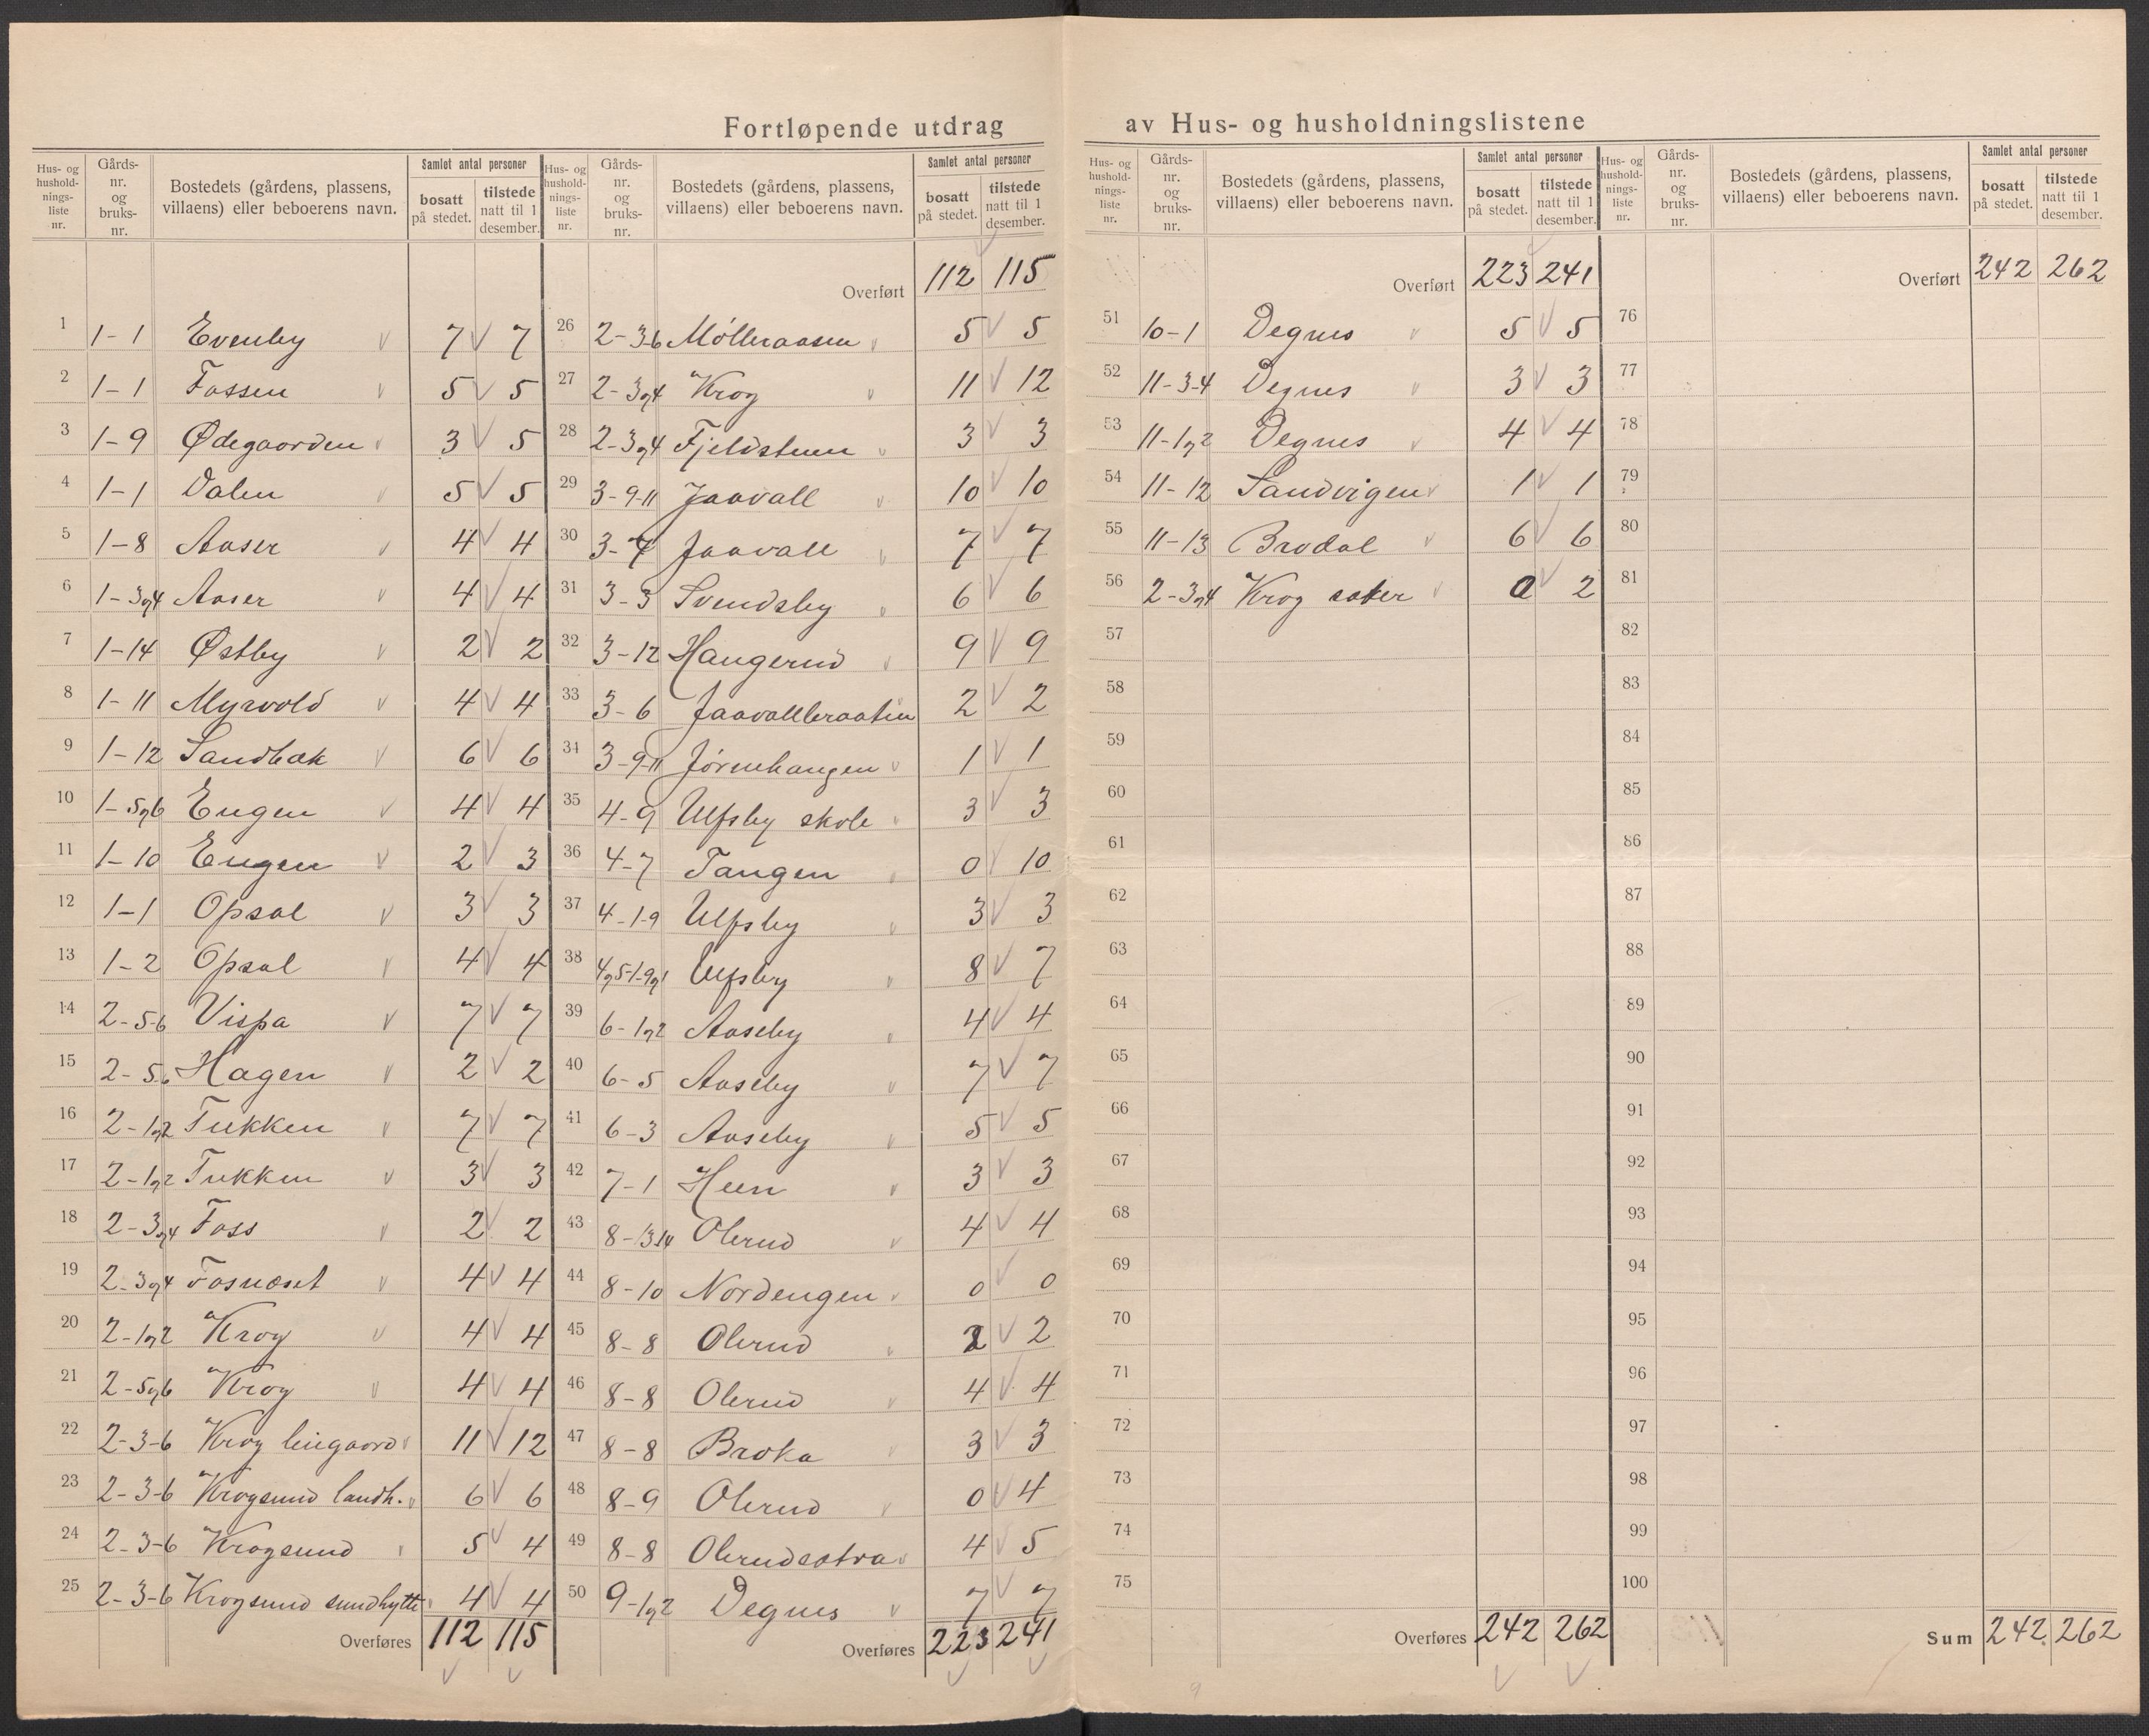 Fortløpende utdrag av Hus- og husholdningslistene
Hus- og husholdningsliste nr. | Gårdsnr. og bruksnr. | Bostedets (gårdens, plassens, villaens) eller beboerens navn. | Samlet antal personer bosatt på stedet. | tilstede natt til 1 desember.
1 1-1 Evenby 7 7
2 1-1 Fossen 5 5
3 1-9 Ødegaarden 3 5
4 1-1 Dalen 5 5
5 1-8 Aaser 4 4
6 1-3og4 Aaser 4 4
7 1-14 Østby 2 2
8 1-11 Myrvold 4 4
9 1-12 Sandbæk 6 6
10 1-5og6 Engen 4 4
11 1-10 Engen 2 3
12 1-1 Opsal 3 3
13 1-2 Opsal 4 4
14 2-5-6 Vispa 7 7
15 2-5-6 Hagen 2 2
16 2-1og2 Tukken 7 7
17 2-1og2 Tukken 3 3
18 2-3og4 Foss 2 2
19 2-3og4 Fosnæset 4 4
20 2-1og2 Krog 4 4
21 2-5og6 Krog 4 4
22 2-3-6 Krog leiegaard 11 12
23 2-3-6 Krogsund landh. 6 6
24 2-3-6 Krogsund 5 4
25 2-3-6 Krogsund sundhytte 4 4
Overføres 112 115
Hus- og husholdningsliste nr. | Gårdsnr. og bruksnr. | Bostedets (gårdens, plassens, villaens) eller beboerens navn. | Samlet antal personer bosatt på stedet. | tilstede natt til 1 desember.
Overført 112 115
26 2-3-6 Mølleraasen 5 5
27 2-3og4 Krog 11 12
28 2-3og4 Fjeldstuen 3 3
29 3-9-11 Jaavall 10 10
30 3-7 Jaavall 7 7
31 3-3 Svendsby 6 6
32 3-12 Haugerud 9 9
33 3-6 Jaavallbraaten 2 2
34 3-9-11 Jørnehaugen 1 1
35 4-9 Ulfsby skole 3 3
36 4-7 Tangen 0 10
37 4-1-9 Ulfsby 3 3
38 4og5-1-9og1 Ulfsby 8 7
39 6-1og2 Aaseby 4 4
40 6-5 Aaseby 7 7
41 6-3 Aaseby 5 5
42 7-1 Heen 3 3
43 8-13-14 Olerud 4 4
44 8-10 Nordengen 0 0
45 8-8 Olerud 2 2
46 8-8 Olerud 4 4
47 8-8 Broka 3 3
48 8-9 Olerud 0 4
49 8-8 Olerudsætra 4 5
50 9-1og2 Degnes 7 7
Overføres 223 241
Hus- og husholdningsliste nr. | Gårdsnr. og bruksnr. | Bostedets (gårdens, plassens, villaens) eller beboerens navn. | Samlet antal personer bosatt på stedet. | tilstede natt til 1 desember.
Overført 223 241
51 10-1 Degnes 5 5
52 11-3-4 Degnes 3 3
53 11-1og2 Degnes 4 4
54 11-12 Sandvigen 1 1
55 11-13 Brodal 6 6
56 2-3og4 Krog sæter 0 2
57
58
59
60
61
62
63
64
65
66
67
68
69
70
71
72
73
74
75
Overføres 242 262
Hus- og husholdningsliste nr. | Gårdsnr. og bruksnr. | Bostedets (gårdens, plassens, villaens) eller beboerens navn. | Samlet antal personer bosatt på stedet. | tilstede natt til 1 desember.
Overført 242 262
76
77
78
79
80
81
82
83
84
85
86
87
88
89
90
91
92
93
94
95
96
97
98
99
100
Sum 242 262